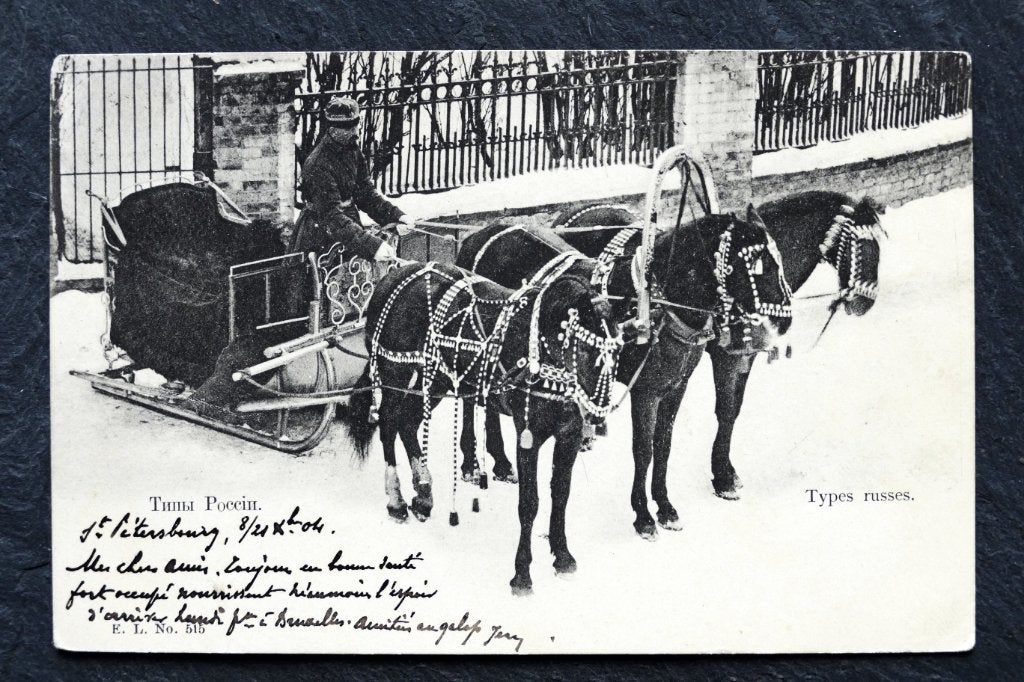 Типы Россіи.
Types russes.
St Pétersbourg, 8/21 Xbr 04.
Mes chers amis. Toujours en bonne santé
fort occupé nourrissant néanmoins l'espoir
d'arriver Lundi à Bruxelles. Amitiés au galop
E. L. No. 515